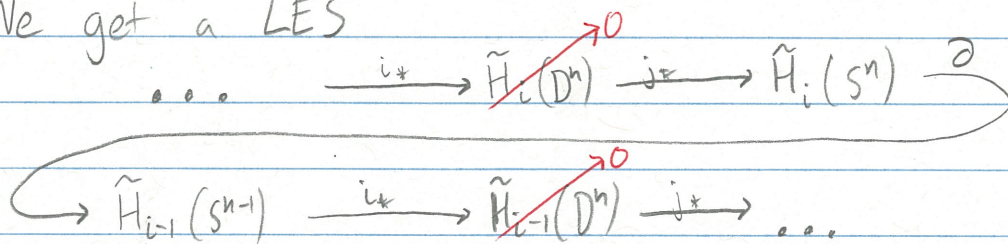 We get a LES
... i_* → H̃_i(Dⁿ) 0 j_* → H̃_i(Sⁿ) ∂
→ H̃_{i-1}(Sⁿ⁻¹) i_* → H̃_{i-1}(Dⁿ) 0 j_* → ...